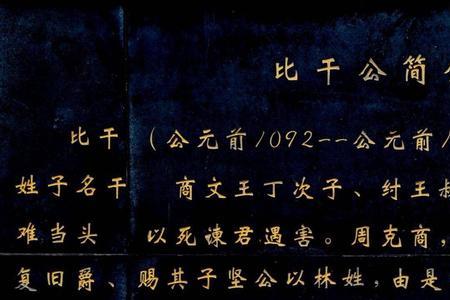 比干公简
比干 (公元前1092--公元前
姓子名干 商文王丁次子、纣王叔
难当头 以死谏君遇害。周克商,
复旧爵、赐其子坚公以林姓,由是